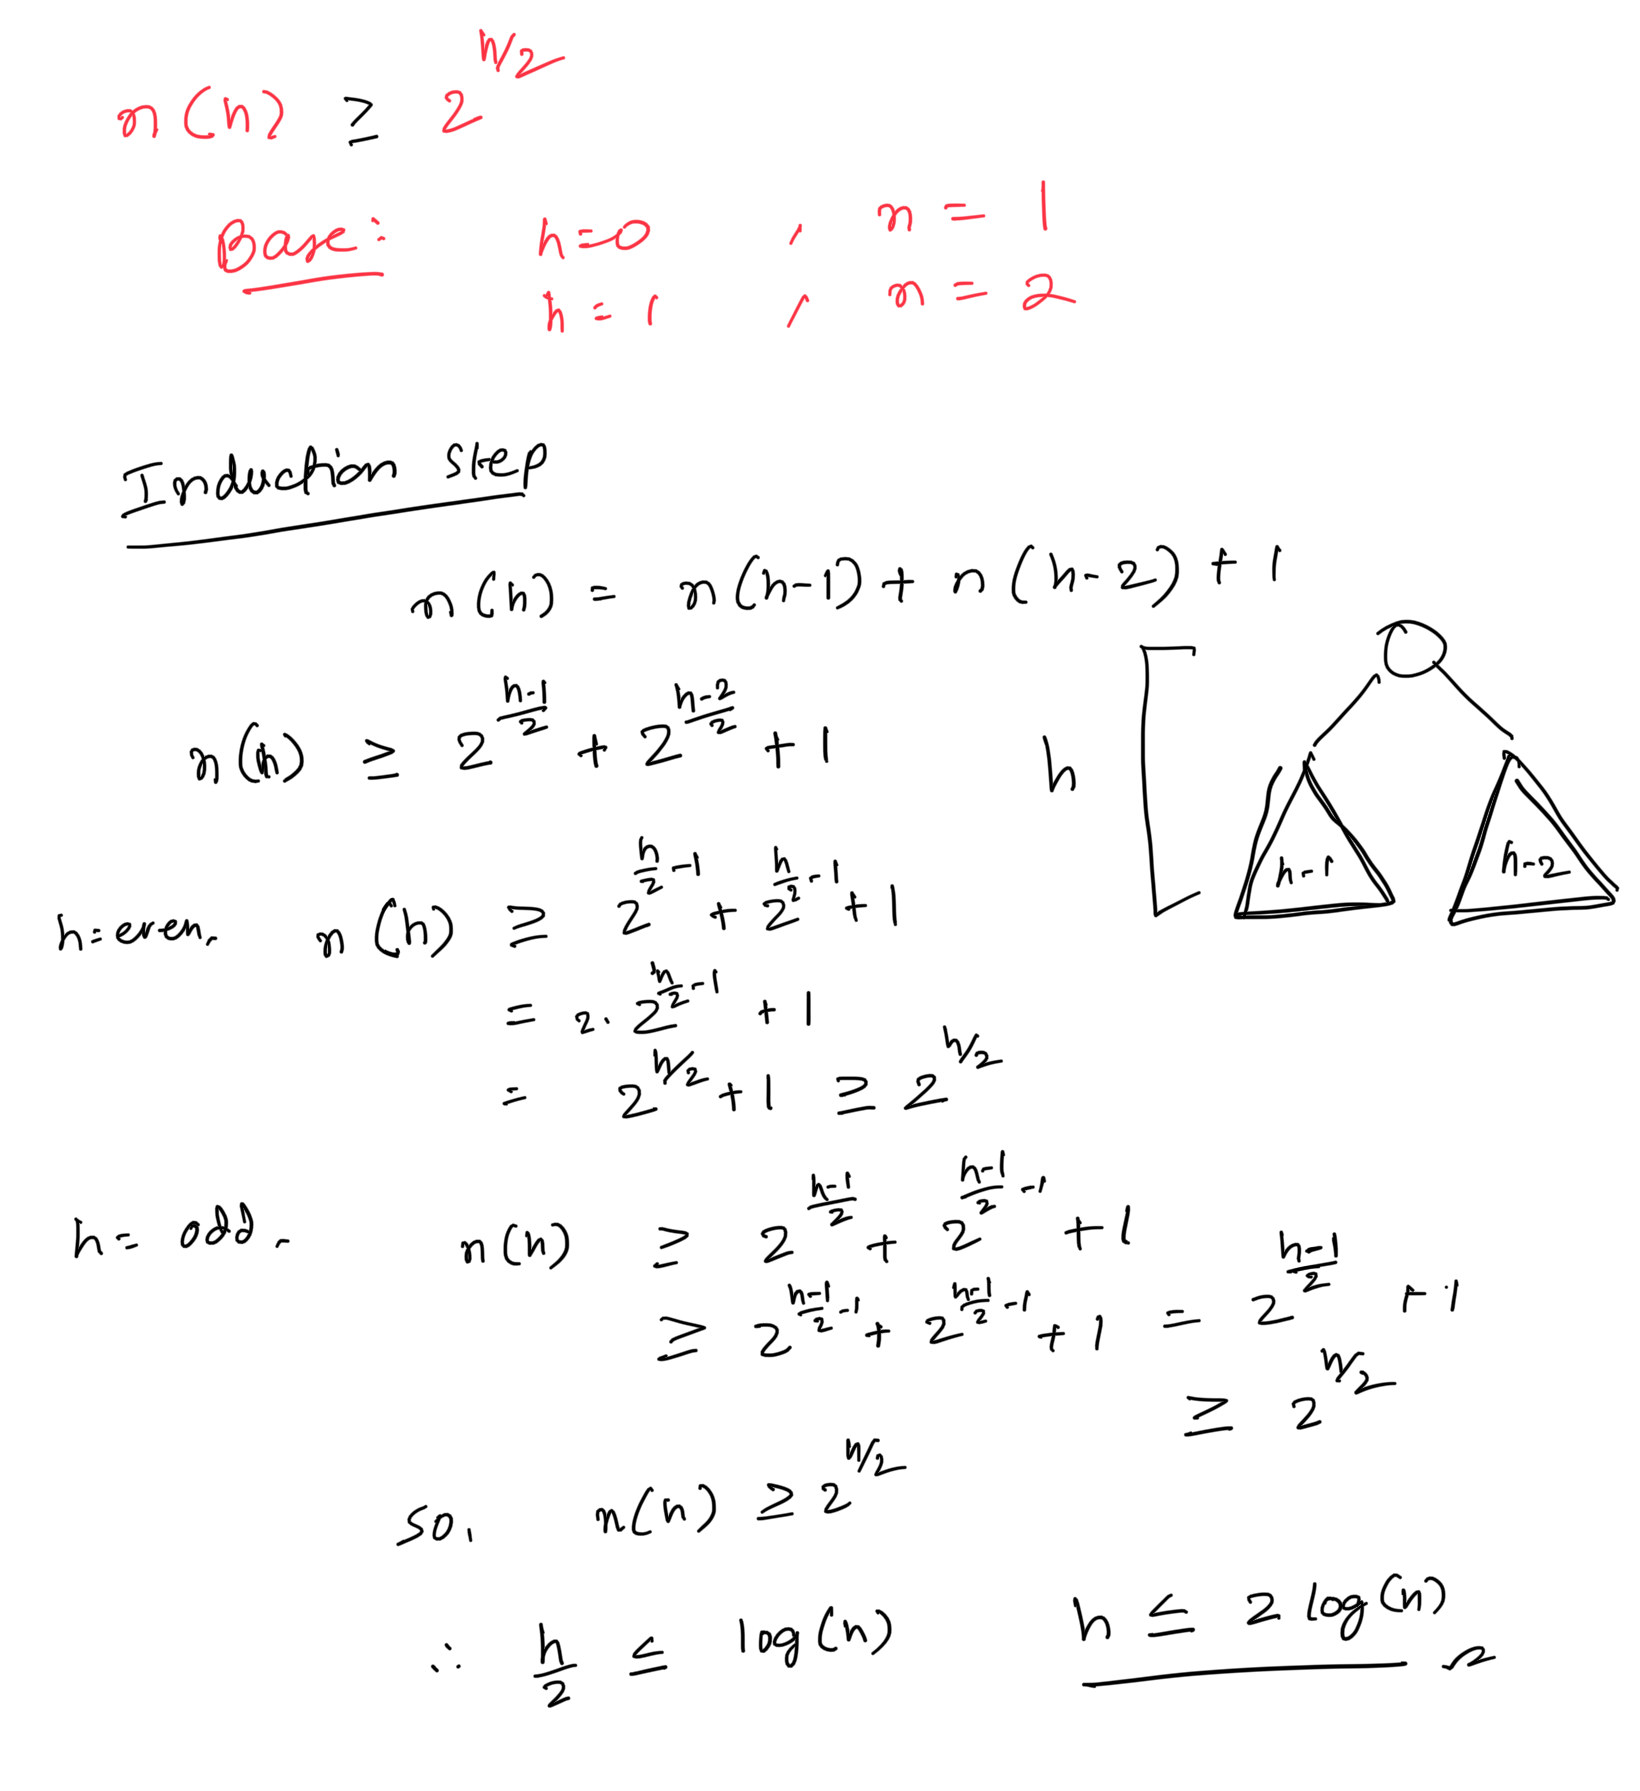 n(h) ≥ 2^{h/2}
Base: h=0 , n = 1
h = 1 , n = 2
Induction step
n(h) = n(h-1) + n(h-2) + 1
n(h) ≥ 2^{\frac{h-1}{2}} + 2^{\frac{h-2}{2}} + 1
h
h-1 h-2
h=even. n(h) ≥ 2^{\frac{h}{2}-1} + 2^{\frac{h}{2}-1} + 1
= 2. 2^{\frac{h}{2}-1} + 1
= 2^{h/2} + 1 ≥ 2^{h/2}
h= odd. n(h) ≥ 2^{\frac{h-1}{2}} + 2^{\frac{h-1}{2}-1} + 1
≥ 2^{\frac{h-1}{2}-1} + 2^{\frac{h-1}{2}-1} + 1 = 2^{\frac{h-1}{2}} + 1
≥ 2^{h/2}
so, n(h) ≥ 2^{h/2}
∴ \frac{h}{2} ≤ log(n) h ≤ 2 log(n)